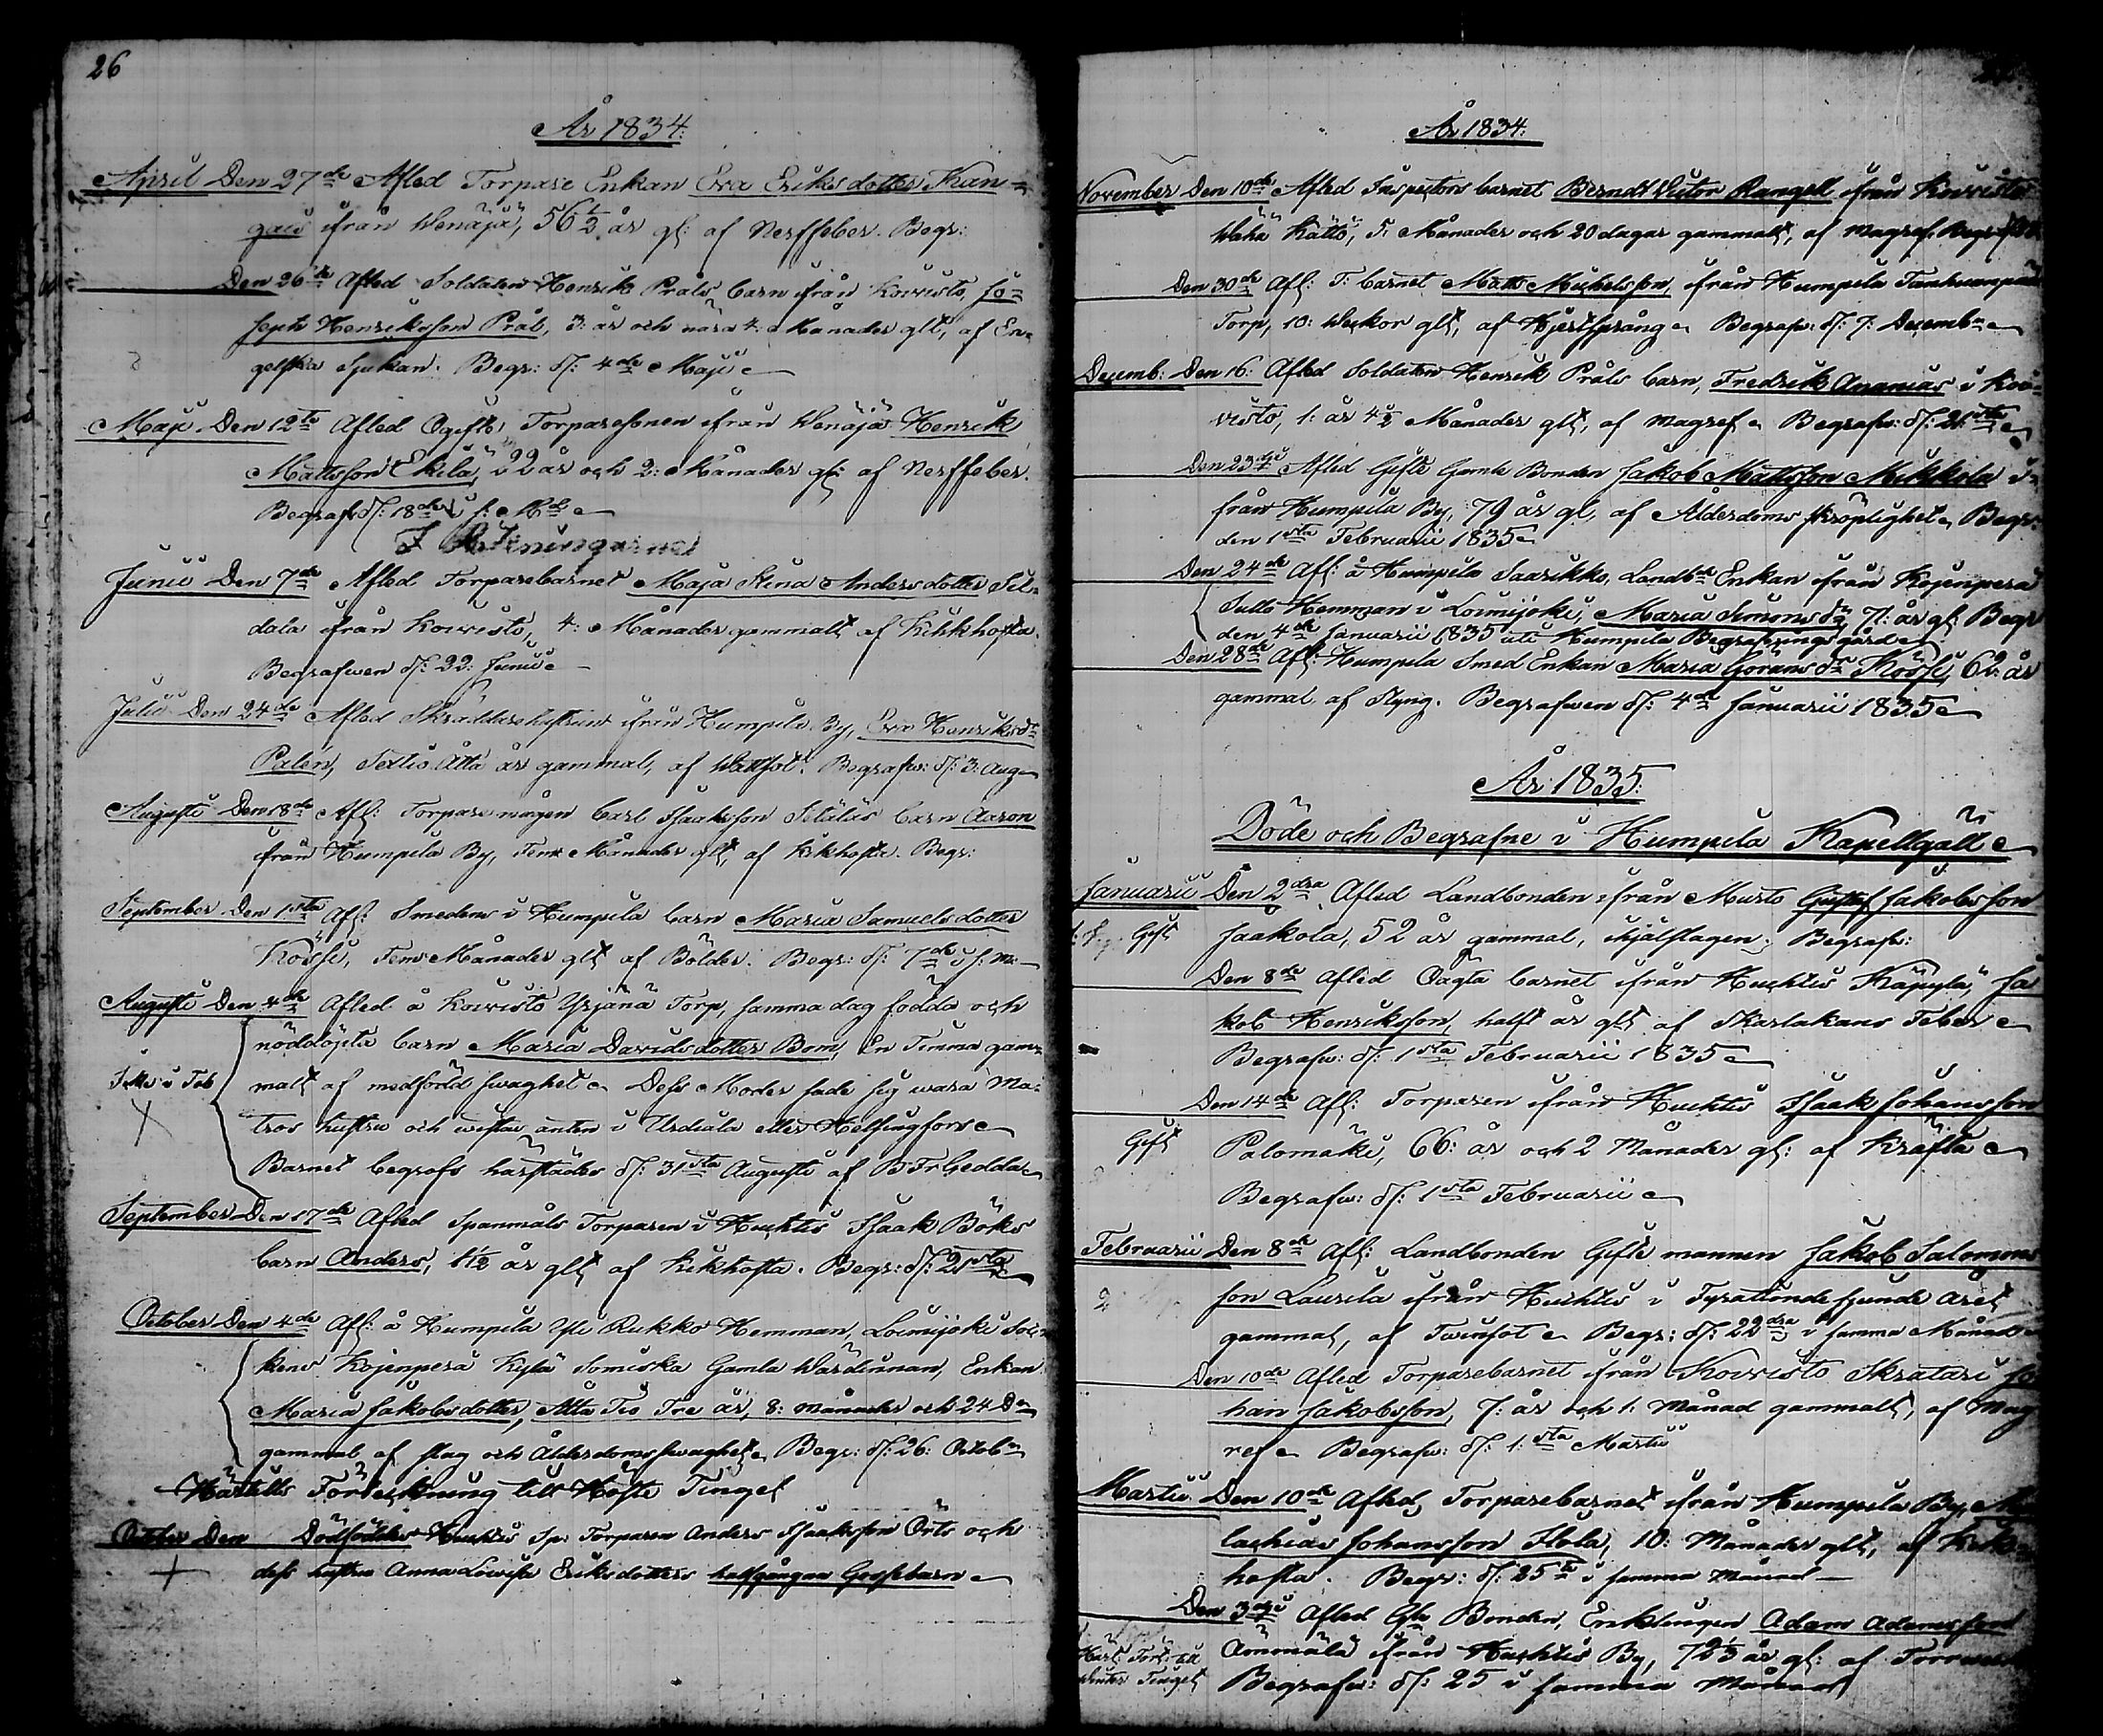 26
År 1834:
April Den 27de Afled Torpare Enkan Eva Eriks dotter Kan-
gais ifrån Wenäjä, 56 1/2 år gl: af Nerffeber. Begr:
Den 26te Afled Soldaten Henrik Pråls barn ifrån Koivisto, Jo-
seph Henriksson Prål, 3: år och nära 4: Månader glt, af En-
gelska Sjukan. Begr: d: 4de Maji
Maji Den 12te Afled Ogifte Torparesonen ifrån Wenäjä Henrik
Mattsson Ekila, 22 år och 2: Månader gl: af Nerffeber.
Begraf: d: 18de i s: Md
Junii Den 7de Afled Torparebarnet Maja Stina Anders dotter Sil-
dala ifrån Koivisto, 4: Månader gammalt af Kikhosta.
Begrafwen d: 22: Junii
Julii Den 24de Afled Skräddarehustrun ifrån Humpila By, Eva Henriksdr
Palén, Sextio Åtta år gammal, af Wattsot. Begrafw: d: 3: Aug
Augusti Den 18de Afl: Torpare mågen Carl Isaaksson Setäläs barn Aaron
ifrån Humpila By, Fem Månader glt, af Kikhosta. Begr:
September Den 1sta Afl: Smedens i Humpila barn Maria Samuelsdotter
Kössi, Fem Månader glt af Bölder. Begr: d: 7de i s: m:
Augusti Den 4de Afled å Koivisto Yrjänä Torp, samma dag födda och
nöddöpta barn Maria Davidsdotter Bom, En Timma gam-
malt af medfödd swaghet. Dess Moder sade sig wara Ma-
tros hustru och wistas anten i Urdiala eller Helsingfors
Barnet begrofs härstädes d: 31sta Augusti af B Fr Gedda
September Den 17de Afled Spanmåls Torparen i Huhtis Isaak Böks
barn Anders, 1 1/2 år glt af Kikhosta. Begr: d: 21sta
October Den 4de Afl: å Humpila Yli Rukko Hemman, Loimijoki Sok-
kens Kojenperä Kylä Somiska Gamla Wärdinnan, Enkan
Maria Jakobsdotter, Åtta Tio Tre år, 8: månader och 24 D
gammal af slag och Ålderdoms swaghet. Begr: d: 26: Octob
Härtills Förteckning till Höste Tinget
October Den Dödföddes Huhtis Sp: Torparen Anders Isaaksson Örts och
dess hustru Anna Lovisa Eriksdotters halfgångna Gossebarn
År 1834:
November Den 10de Afled Inspectors barnet Berndt Victor Rangell ifrån Koivisto
Waha Kättö, 5: Månader och 20 dagar gammalt, af magref. Begr:
Den 30de Afl: T: barnet Matts Michelsson, ifrån Humpila Tanhuanpää
Torp, 10: Weckor glt, af Hjertsprång. Begrafw: d: 7: Decemb
Decemb: Den 16: Afled Soldaten Henrik Pråls barn, Fredrik Ananias i Koi-
visto, 1: år 4 1/2 Månader glt, af magref. Begrafw: d: 21sta
Den 23dje Afled Gifte Gamle Bonden Jakob Mattsson Mikkola i-
från Humpila By, 79 år gl, af Ålderdoms skröplighet. Begr:
den 1sta Februarii 1835
Den 24de Afl: å Humpila Saarikko, Landbd Enkan ifrån Kojenperä
Sullo Hemman i Loimijoki, Maria Simonsdr, 71: år gl: Begr
den 4de Januarii 1835 uti Humpila Begrafnings gård
Den 28de Afl: Humpila Smed Enkan Maria Görans dr Kössi, 62 år
gammal af Styng. Begrafwen d: 4de Januarii 1835
År 1835:
Döde och Begrafne i Humpila Kapellgäll
Januarii Den 2dra Afled Landbonden ifrån Murto Gustaf Jakobsson
Gift Jaakola, 52 år gammal, ihjälslagen. Begrafw:
Den 8de Afled Oägta barnet ifrån Huhtis Käpylä, Ja
kob Henriksson, halft år glt af Skarlakans Feber
Begrafw: d: 1sta Februarii 1835
Den 14de Afl: Torparen ifrån Huhtis Isaak Johansson
Gift Palomäki, 66: år och 2 Månader gl: af Kräfta
Begrafw: d: 1sta Februarii
Februarii Den 8de Afl: Landbonden Gifte mannen Jakob Salomons
son Laurila ifrån Huhtis i Fyrationde sjunde året
gammal, af Twinsot. Begr: d: 22dra i samma Månad
Den 10de Afled Torparebarnet ifrån Koivisto Skratari Jo
han Jakobsson, 7: år och 1: Månad gammalt, af Mag
ref. Begrafw: d: 1:sta Martii
Martii Den 10de Afled, Torparebarnet ifrån Humpila By,
lachias Johansson Flola, 10: Månader glt, af Kik-
hosta. Begr: d: 25te i samma Månad
Den 3dje Afled Gle Bonden, Enklingen Adam Adamsson
Härt: Fört: till Ammälä ifrån Huhtis By, 72 1/2 år gl: af
Winter Tinget Begrafw: d: 25 i samma Månad